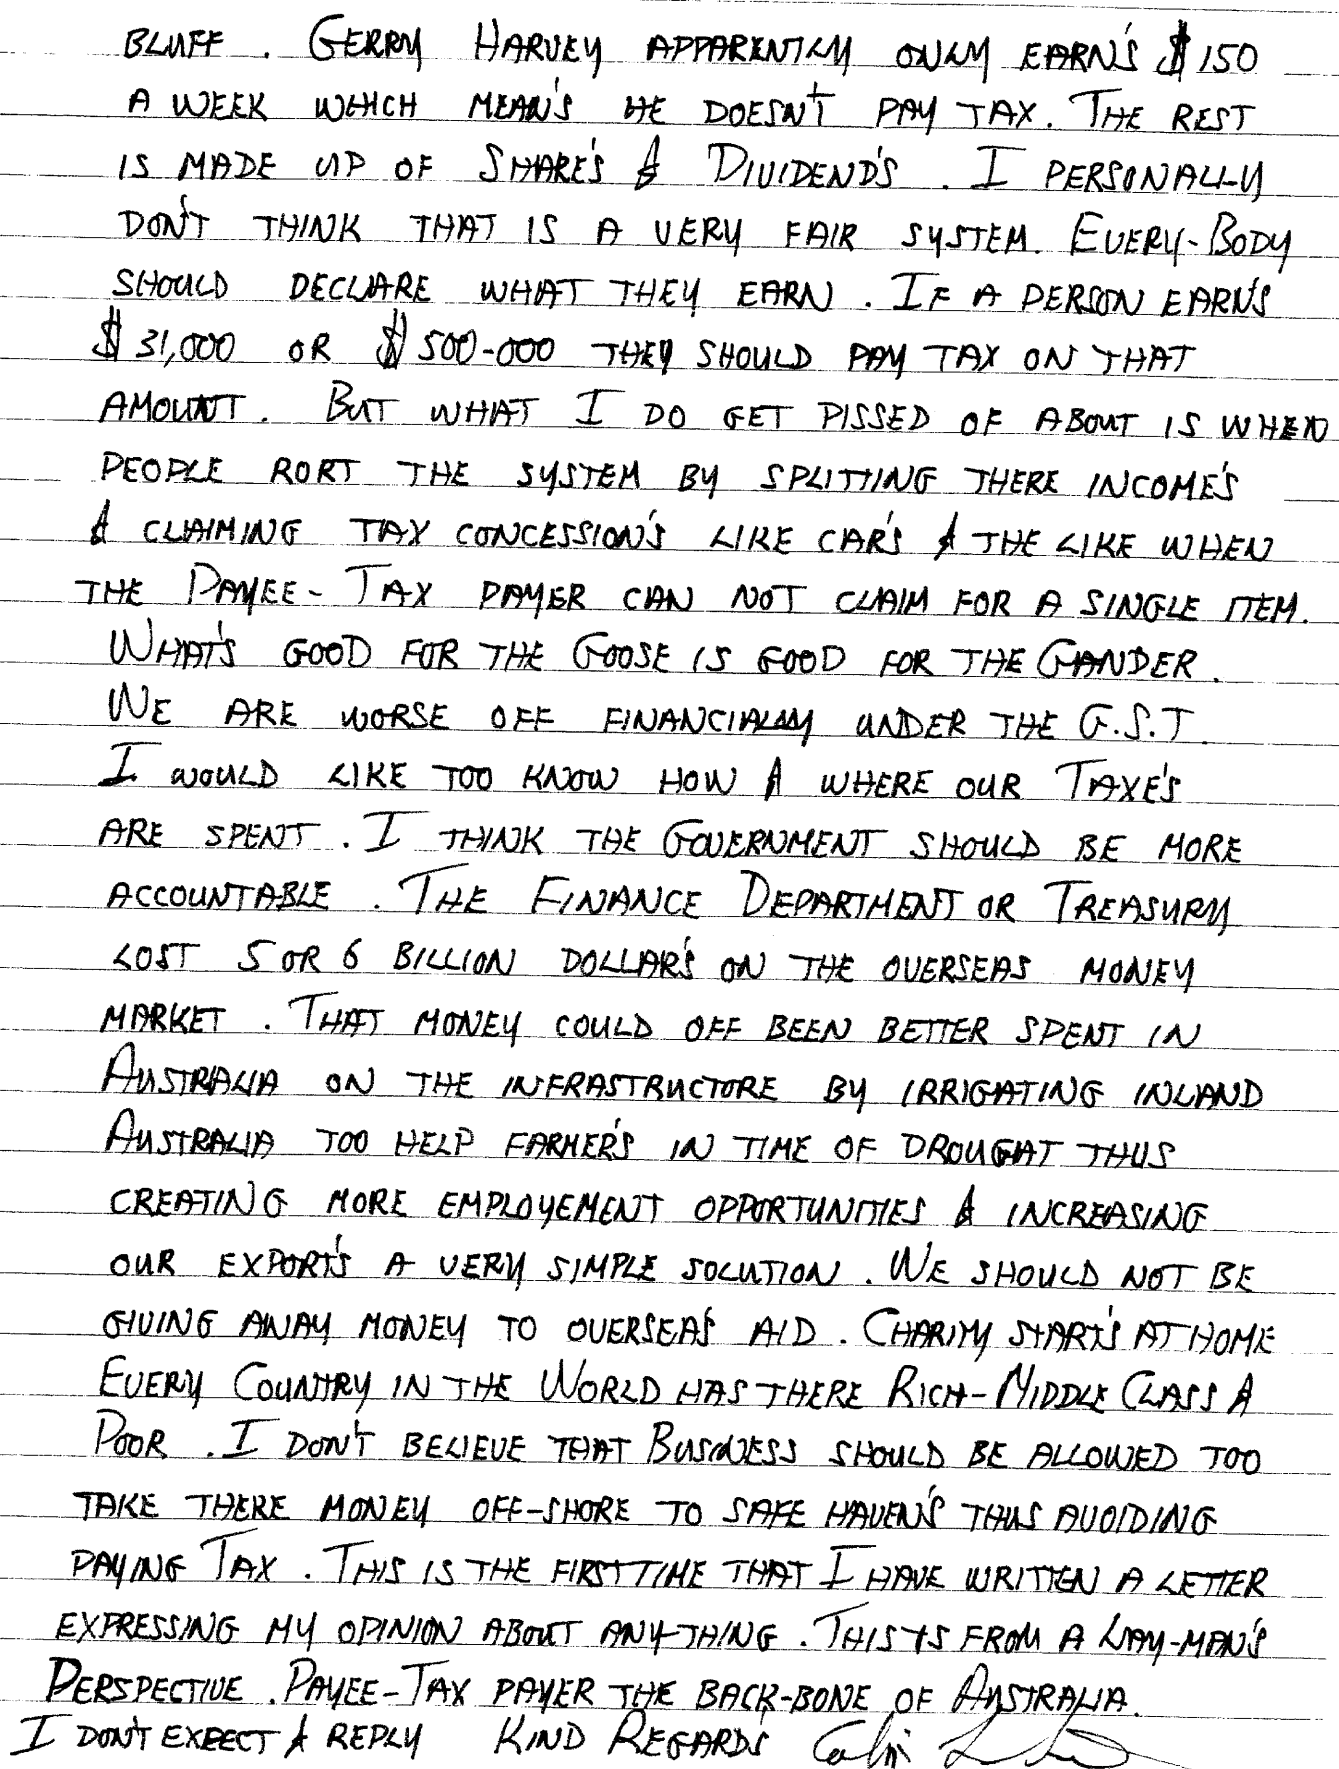 BLUFF . GERRY HARVEY APPARENTLY ONLY EARN'S $150
A WEEK WHICH MEAN'S HE DOESN'T PAY TAX. THE REST
IS MADE UP OF SHARE'S & DIVIDEND'S . I PERSONALLY
DON'T THINK THAT IS A VERY FAIR SYSTEM. EVERY-BODY
SHOULD DECLARE WHAT THEY EARN . IF A PERSON EARN'S
$31,000 OR $500-000 THEY SHOULD PAY TAX ON THAT
AMOUNT. BUT WHAT I DO GET PISSED OF ABOUT IS WHEN
PEOPLE RORT THE SYSTEM BY SPLITTING THERE INCOME'S
& CLAIMING TAX CONCESSION'S LIKE CAR'S & THE LIKE WHEN
THE PAYEE-TAX PAYER CAN NOT CLAIM FOR A SINGLE ITEM.
WHAT'S GOOD FOR THE GOOSE IS GOOD FOR THE GANDER.
WE ARE WORSE OFF FINANCIALLY UNDER THE G.S.T.
I WOULD LIKE TOO KNOW HOW & WHERE OUR TAXE'S
ARE SPENT . I THINK THE GOVERNMENT SHOULD BE MORE
ACCOUNTABLE . THE FINANCE DEPARTMENT OR TREASURY
LOST 5 OR 6 BILLION DOLLAR'S ON THE OVERSEAS MONEY
MARKET . THAT MONEY COULD OFF BEEN BETTER SPENT IN
AUSTRALIA ON THE INFRASTRUCTORE BY IRRIGATING INLAND
AUSTRALIA TOO HELP FARMER'S IN TIME OF DROUGHT THUS
CREATING MORE EMPLOYEMENT OPPORTUNITIES & INCREASING
OUR EXPORT'S A VERY SIMPLE SOLUTION . WE SHOULD NOT BE
GIVING AWAY MONEY TO OVERSEA'S AID . CHARITY START'S AT HOME
EVERY COUNTRY IN THE WORLD HAS THERE RICH-MIDDLE CLASS &
POOR . I DON'T BELIEVE THAT BUSINESS SHOULD BE ALLOWED TOO
TAKE THERE MONEY OFF-SHORE TO SAFE HAVEN'S THUS AVOIDING
PAYING TAX . THIS IS THE FIRST TIME THAT I HAVE WRITTEN A LETTER
EXPRESSING MY OPINION ABOUT ANY-THING . THIS IS FROM A LAY-MAN'S
PERSPECTIVE . PAYEE-TAX PAYER THE BACK-BONE OF AUSTRALIA.
I DON'T EXPECT A REPLY KIND REGARD'S Colin